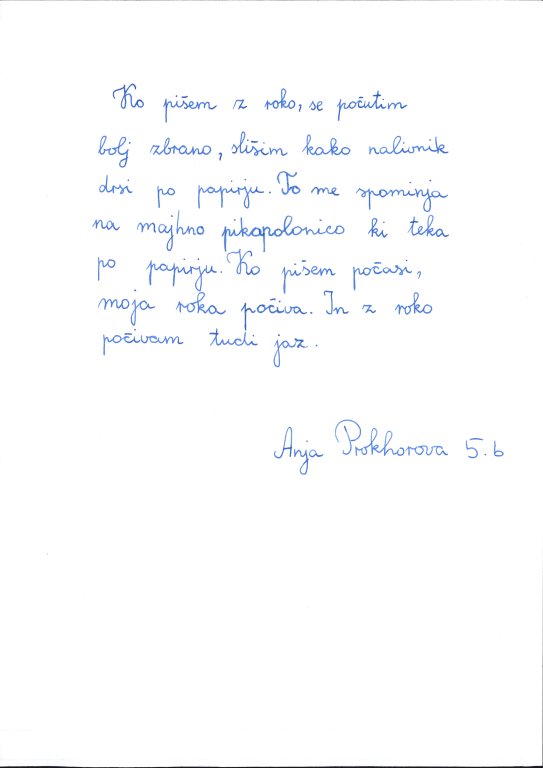 Ko pišem z roko, se počutim
bolj zbrano, slišim kako nalivnik
drsi po papirju. To me spominja
na majhno pikapolonico ki teka
po papirju. Ko pišem počasi,
moja roka počiva. In z roko
počivam tudi jaz.
Anja Prokhorova 5.b